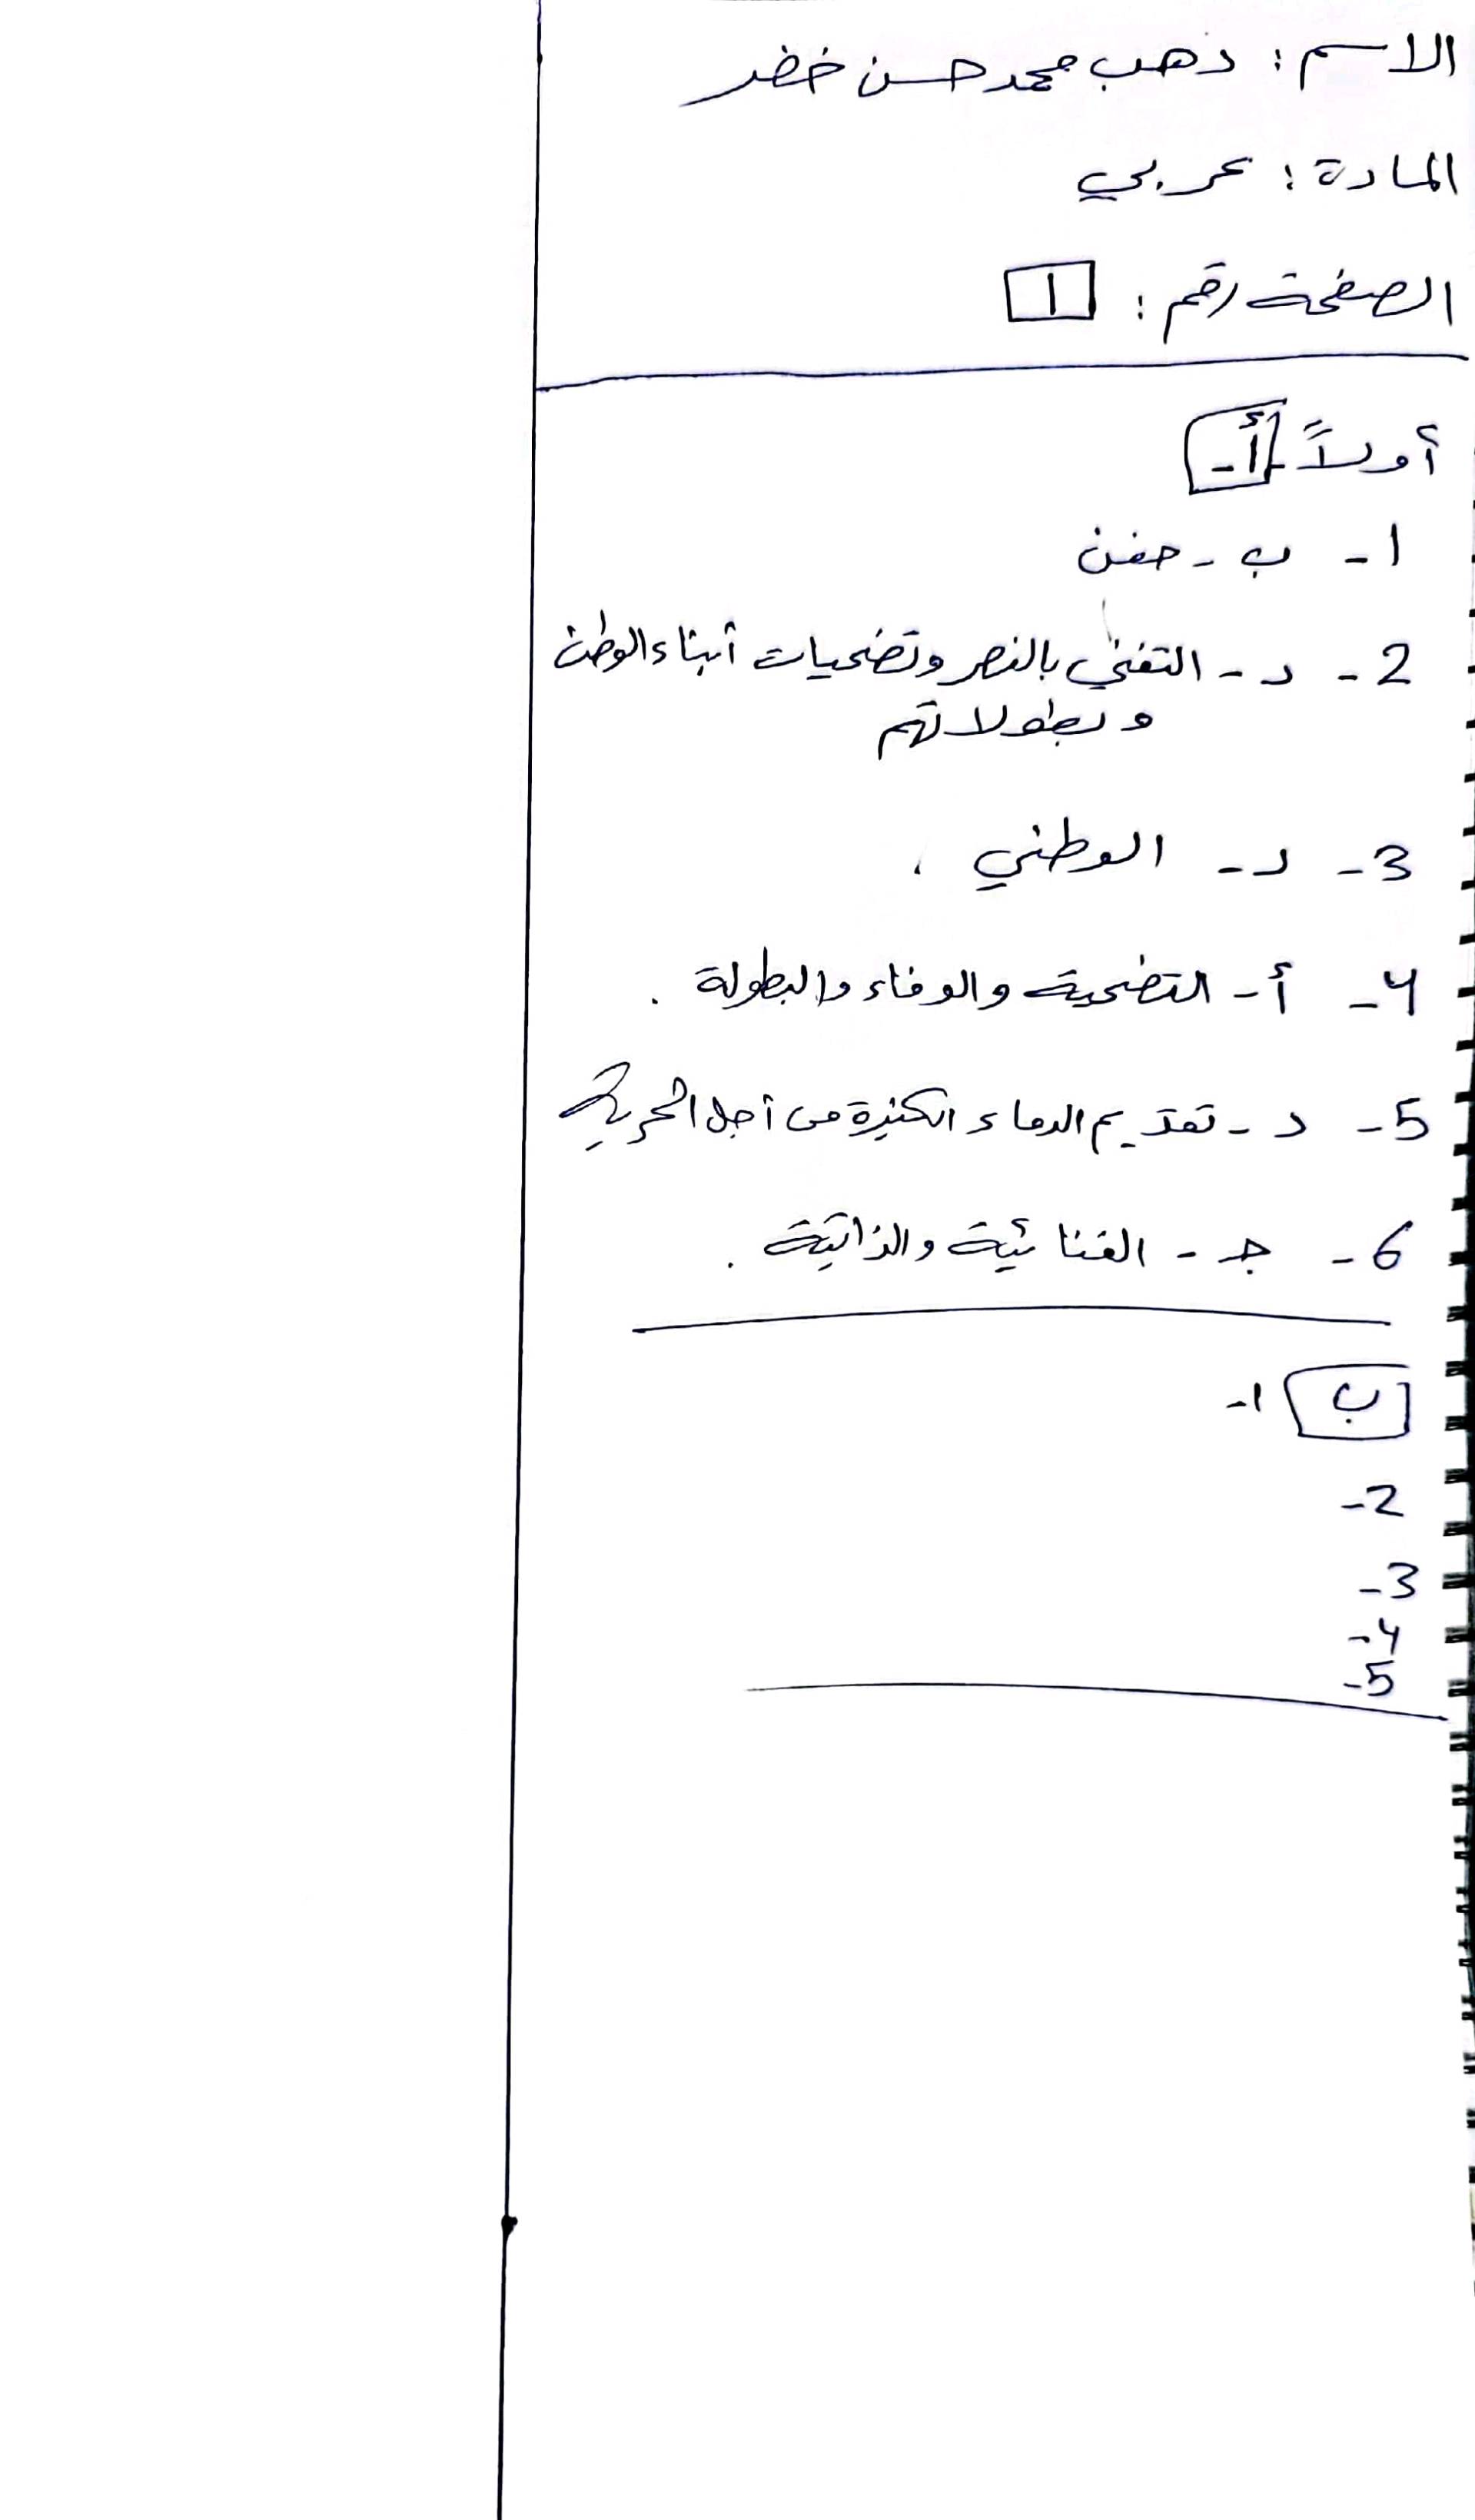 الاسم: ذهب محمد حسن خضر
المادة: عربي
الصفحة رقم: 1
أولاً أ-
1- ب - حفن
2- د - التغني بالنصر وتضحيات أبناء الوطن
وبطولاتهم
3- د - الوطني .
4- أ - التضحية والوفاء والبطولة .
5- د - تقديم الدماء الكثيرة من أجل الحرية
6- جـ - الغنائية والذاتية .
ب 1-
2-
3-
4-
5-